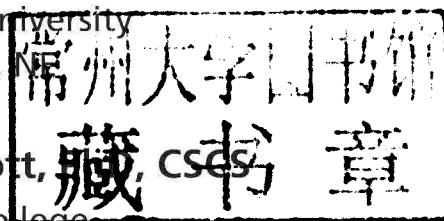 niversity
NE
常州大学图书馆
tt, , CSCS
藏书章
llege